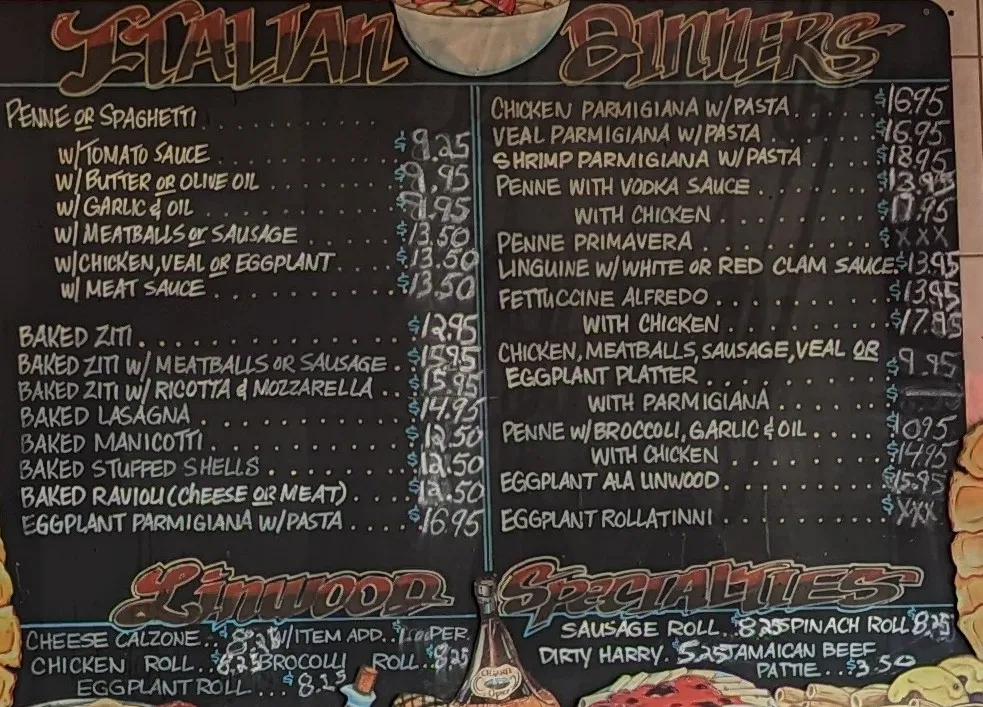 ITALIAN DINNERS
PENNE OR SPAGHETTI
W/TOMATO SAUCE $9.25
W/BUTTER OR OLIVE OIL $9.95
W/GARLIC & OIL $9.95
W/MEATBALLS OR SAUSAGE $13.50
W/CHICKEN, VEAL OR EGGPLANT $13.50
W/ MEAT SAUCE $13.50
BAKED ZITI $12.95
BAKED ZITI W/MEATBALLS OR SAUSAGE $15.95
BAKED ZITI W/ RICOTTA & MOZZARELLA $15.95
BAKED LASAGNA $14.95
BAKED MANICOTTI $12.50
BAKED STUFFED SHELLS $12.50
BAKED RAVIOLI (CHEESE OR MEAT) $12.50
EGGPLANT PARMIGIANA W/PASTA $16.95
CHICKEN PARMIGIANA W/PASTA $16.95
VEAL PARMIGIANA W/PASTA $16.95
SHRIMP PARMIGIANA W/PASTA $18.95
PENNE WITH VODKA SAUCE $13.95
WITH CHICKEN $17.95
PENNE PRIMAVERA $XXX
LINGUINE W/WHITE OR RED CLAM SAUCE $13.95
FETTUCCINE ALFREDO $13.95
WITH CHICKEN $17.95
CHICKEN, MEATBALLS, SAUSAGE, VEAL OR
EGGPLANT PLATTER $9.95
WITH PARMIGIANA $
PENNE W/BROCCOLI, GARLIC & OIL $1095
WITH CHICKEN $14.95
EGGPLANT ALA LINWOOD $15.95
EGGPLANT ROLLATINNI $XXX
LINWOOD SPECIALTIES
CHEESE CALZONE W/ITEM ADD PER.
CHICKEN ROLL $8.25 BROCOLLI ROLL $8.25
EGGPLANT ROLL $8.25
SAUSAGE ROLL $8.25 SPINACH ROLL $8.25
DIRTY HARRY $5.25 JAMAICAN BEEF
PATTIE $3.50